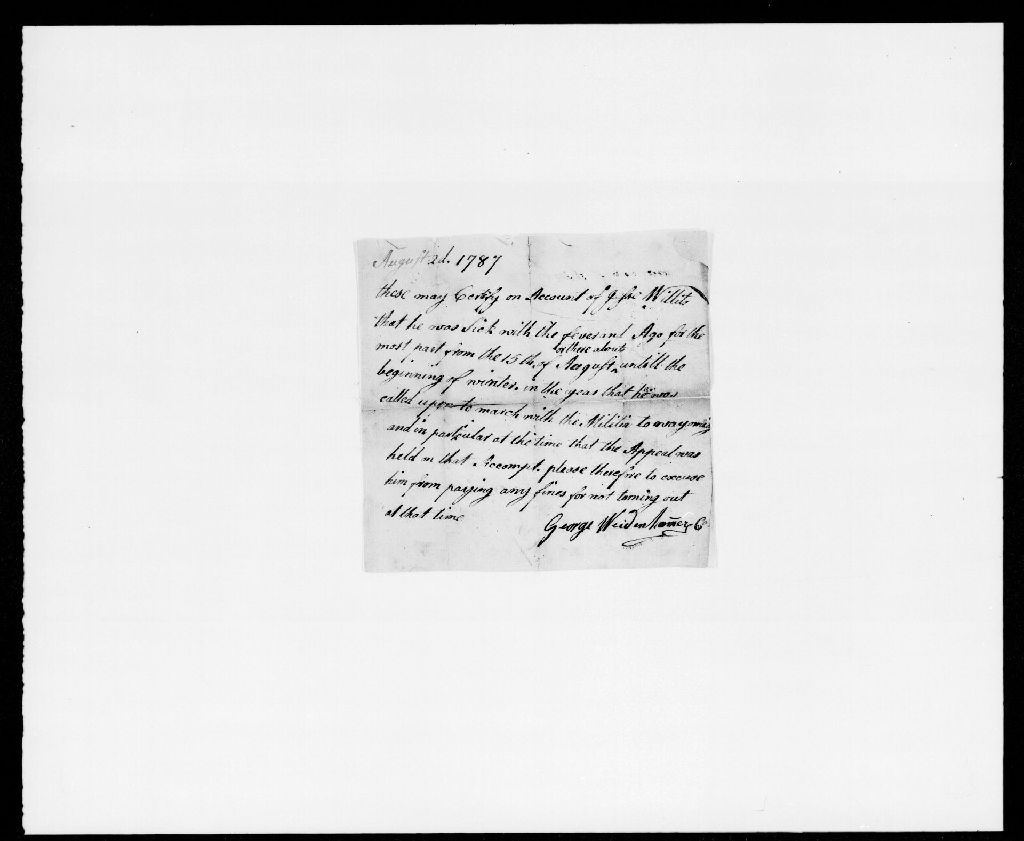 August 2d. 1787
these may Certify on Account of Willits
that he was Sick with the fever and Ago for the
most part from the 15th. of August or there abouts untill the
beginning of winter. in the year that he was
called upon to march with the Militia to wayoming
and in particular at the time that the Appeal was
held on that Accompt. please therefore to excuse
him from paying any fines for not turning out
at that time
George Weidenhamer